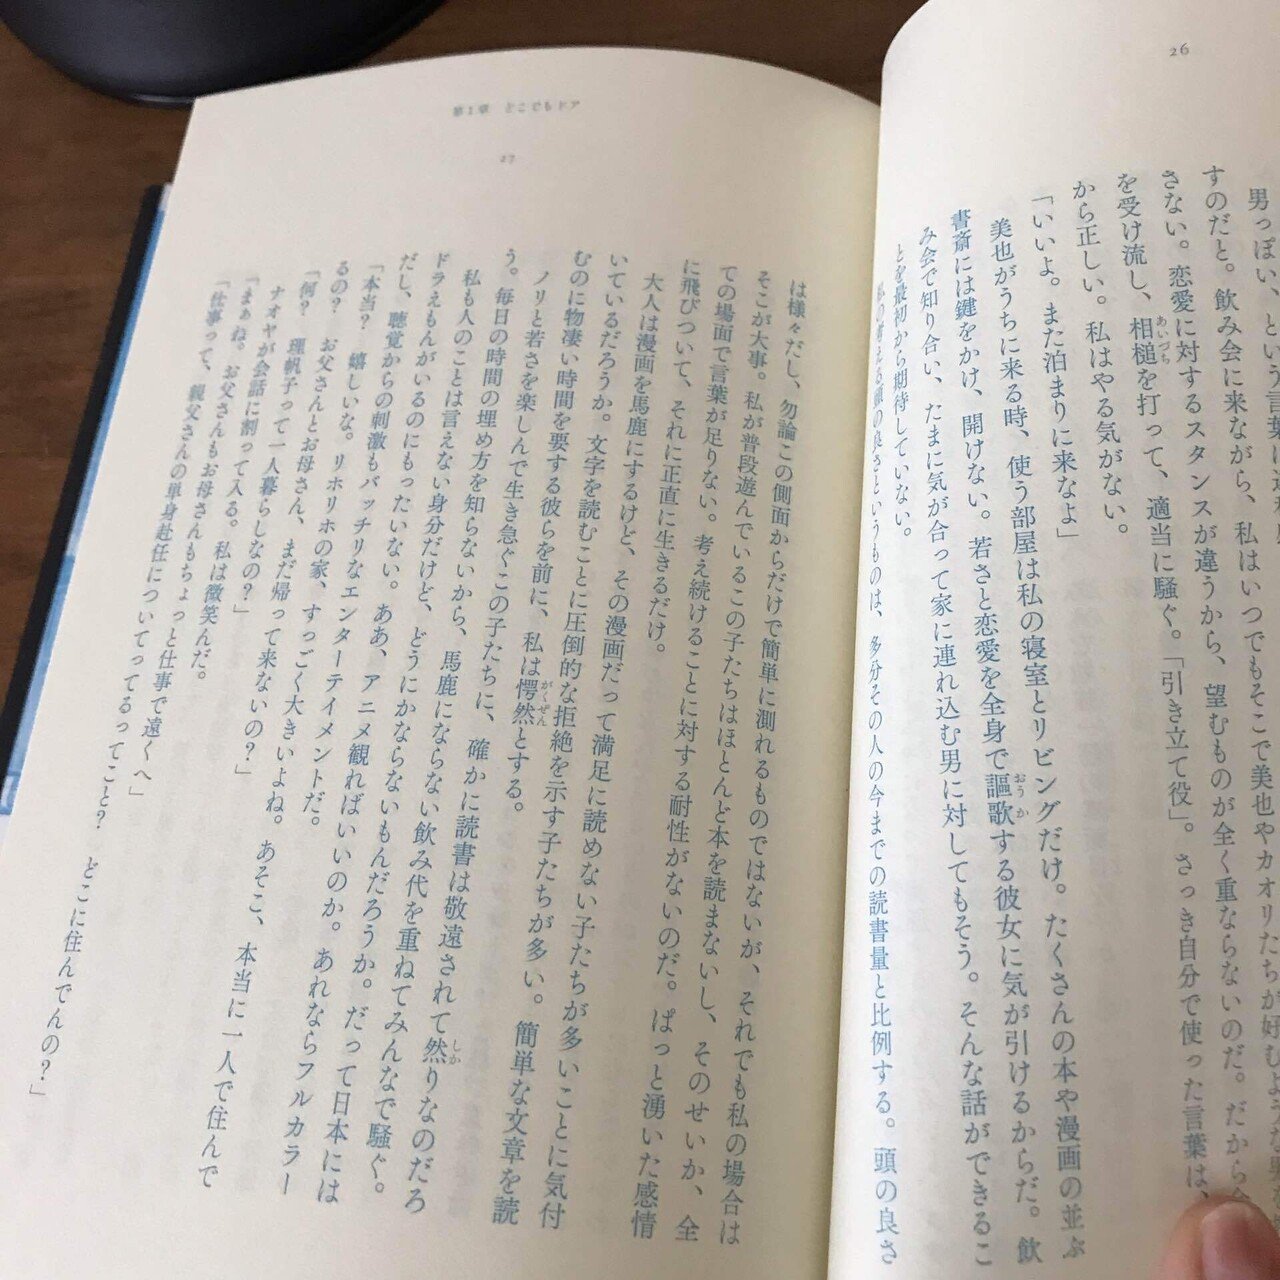 26
男っぽい、という言葉に
すのだと。飲み会に来ながら、私はいつでもそこで美也やカオリたちが好むような
さない。恋愛に対するスタンスが違うから、望むものが全く重ならないのだ。だから
を受け流し、相槌を打って、適当に騒ぐ。「引き立て役」。さっき自分で使った言葉は、
あいづち
から正しい。私はやる気がない。
「いいよ。また泊まりに来なよ」
美也がうちに来る時、使う部屋は私の寝室とリビングだけ。たくさんの本や漫画の並ぶ
書斎には鍵をかけ、開けない。若さと恋愛を全身で謳歌する彼女に気が引けるからだ。飲
おうか
み会で知り合い、たまに気が合って家に連れ込む男に対してもそう。そんな話ができるこ
とを最初から期待していない。
私の考える頭の良さというものは、多分その人の今までの読書量と比例する。頭の良さ
第1章 どこでもドア
27
は様々だし、勿論この側面からだけで簡単に測れるものではないが、それでも私の場合は
そこが大事。私が普段遊んでいるこの子たちはほとんど本を読まないし、そのせいか、全
ての場面で言葉が足りない。考え続けることに対する耐性がないのだ。ぱっと湧いた感情
に飛びついて、それに正直に生きるだけ。
大人は漫画を馬鹿にするけど、その漫画だって満足に読めない子たちが多いことに気付
いているだろうか。文字を読むことに圧倒的な拒絶を示す子たちが多い。簡単な文章を読
むのに物凄い時間を要する彼らを前に、私は愕然とする。
がくぜん
ノリと若さを楽しんで生き急ぐこの子たちに、確かに読書は敬遠されて然りなのだろ
しか
う。毎日の時間の埋め方を知らないから、馬鹿にならない飲み代を重ねてみんなで騒ぐ。
私も人のことは言えない身分だけど、どうにかならないもんだろうか。だって日本には
ドラえもんがいるのにもったいない。ああ、アニメ観ればいいのか。あれならフルカラー
だし、聴覚からの刺激もバッチリなエンターテイメントだ。
「本当? 嬉しいな。リホリホの家、すっごく大きいよね。あそこ、本当に一人で住んで
るの? お父さんとお母さん、まだ帰って来ないの?」
「何? 理帆子って一人暮らしなの?」
ナオヤが会話に割って入る。私は微笑んだ。
「まぁね。お父さんもお母さんもちょっと仕事で遠くへ」
「仕事って、親父さんの単身赴任についてってるってこと? どこに住んでんの?」